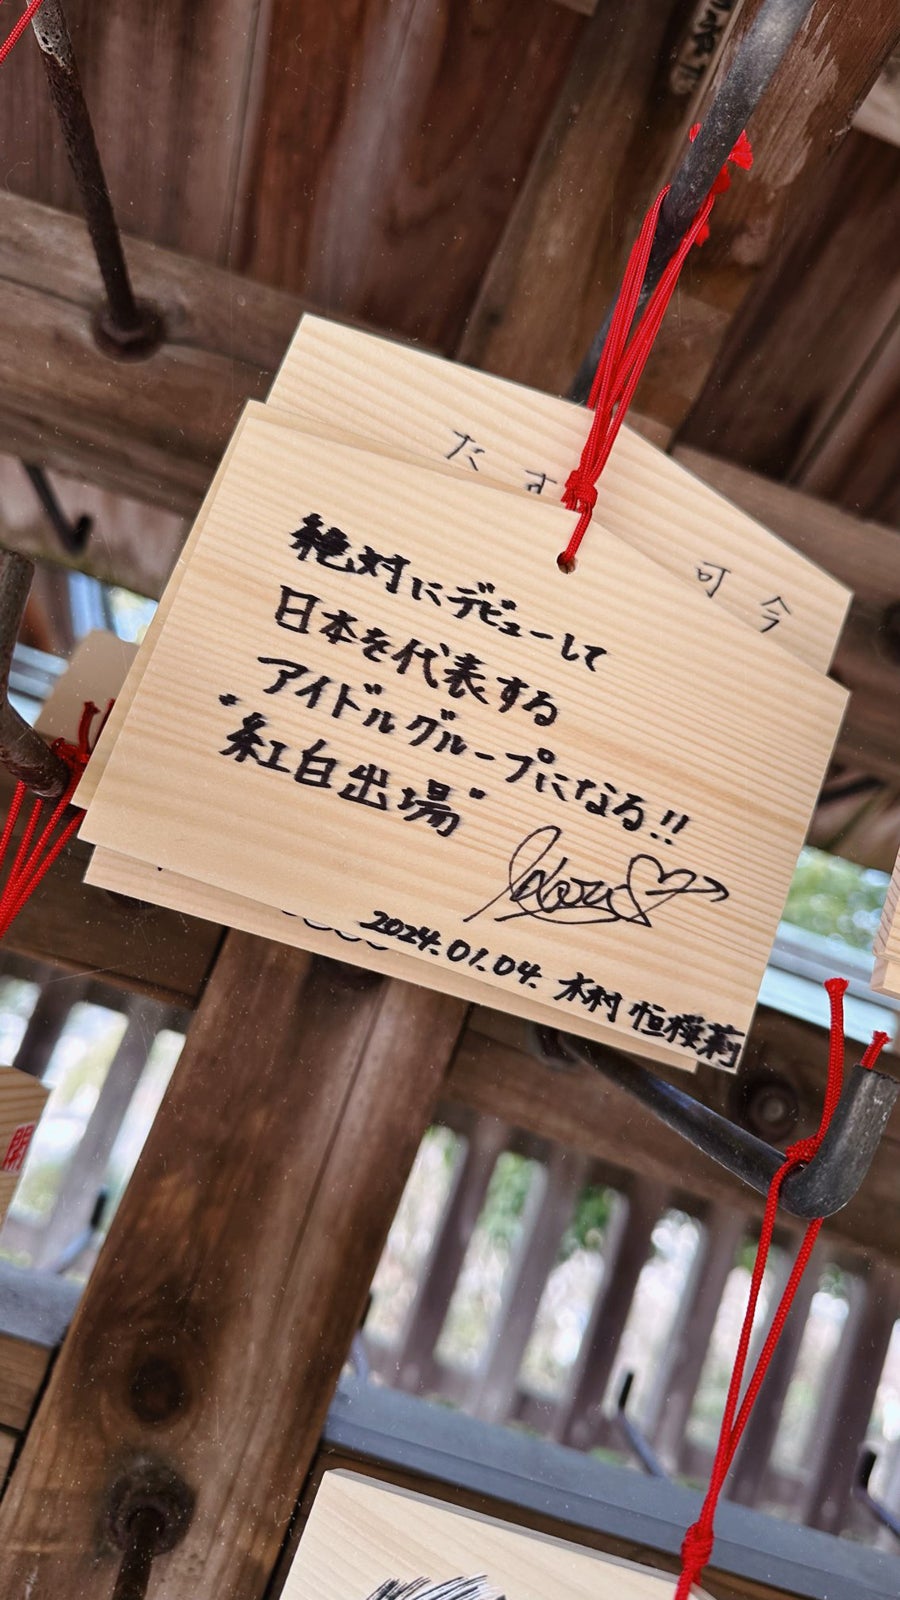 たす
可
今
絶対にデビューして
日本を代表する
アイドルグループになる!!
"紅白出場"
2024.01.04. 木村 恒桜莉
開